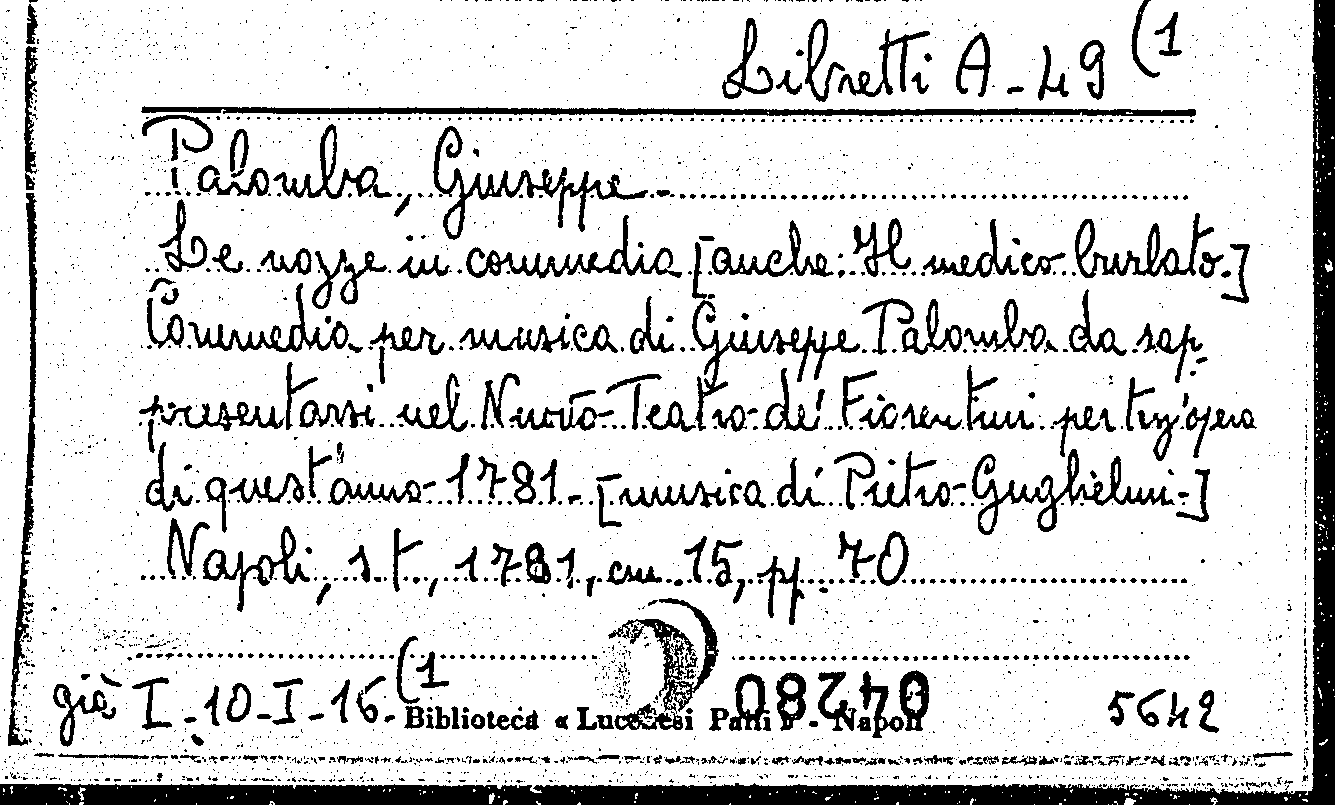 Libretti A-49 (1
Palomba, Giuseppe-
Le nozze in commedia [anche: Il medico burlato.]
Commedia per musica di Giuseppe Palomba da rap-
presentarsi nel Nuovo Teatro de' Fiorentini per terz'opera
di quest'anno 1781. [musica di Pietro Guglielmi.]
Napoli, s.t., 1781, cm. 15, pp. 70
già I-10-I-16.(1
Biblioteca « Lucchesi Palli » - Napoli
04280
5642